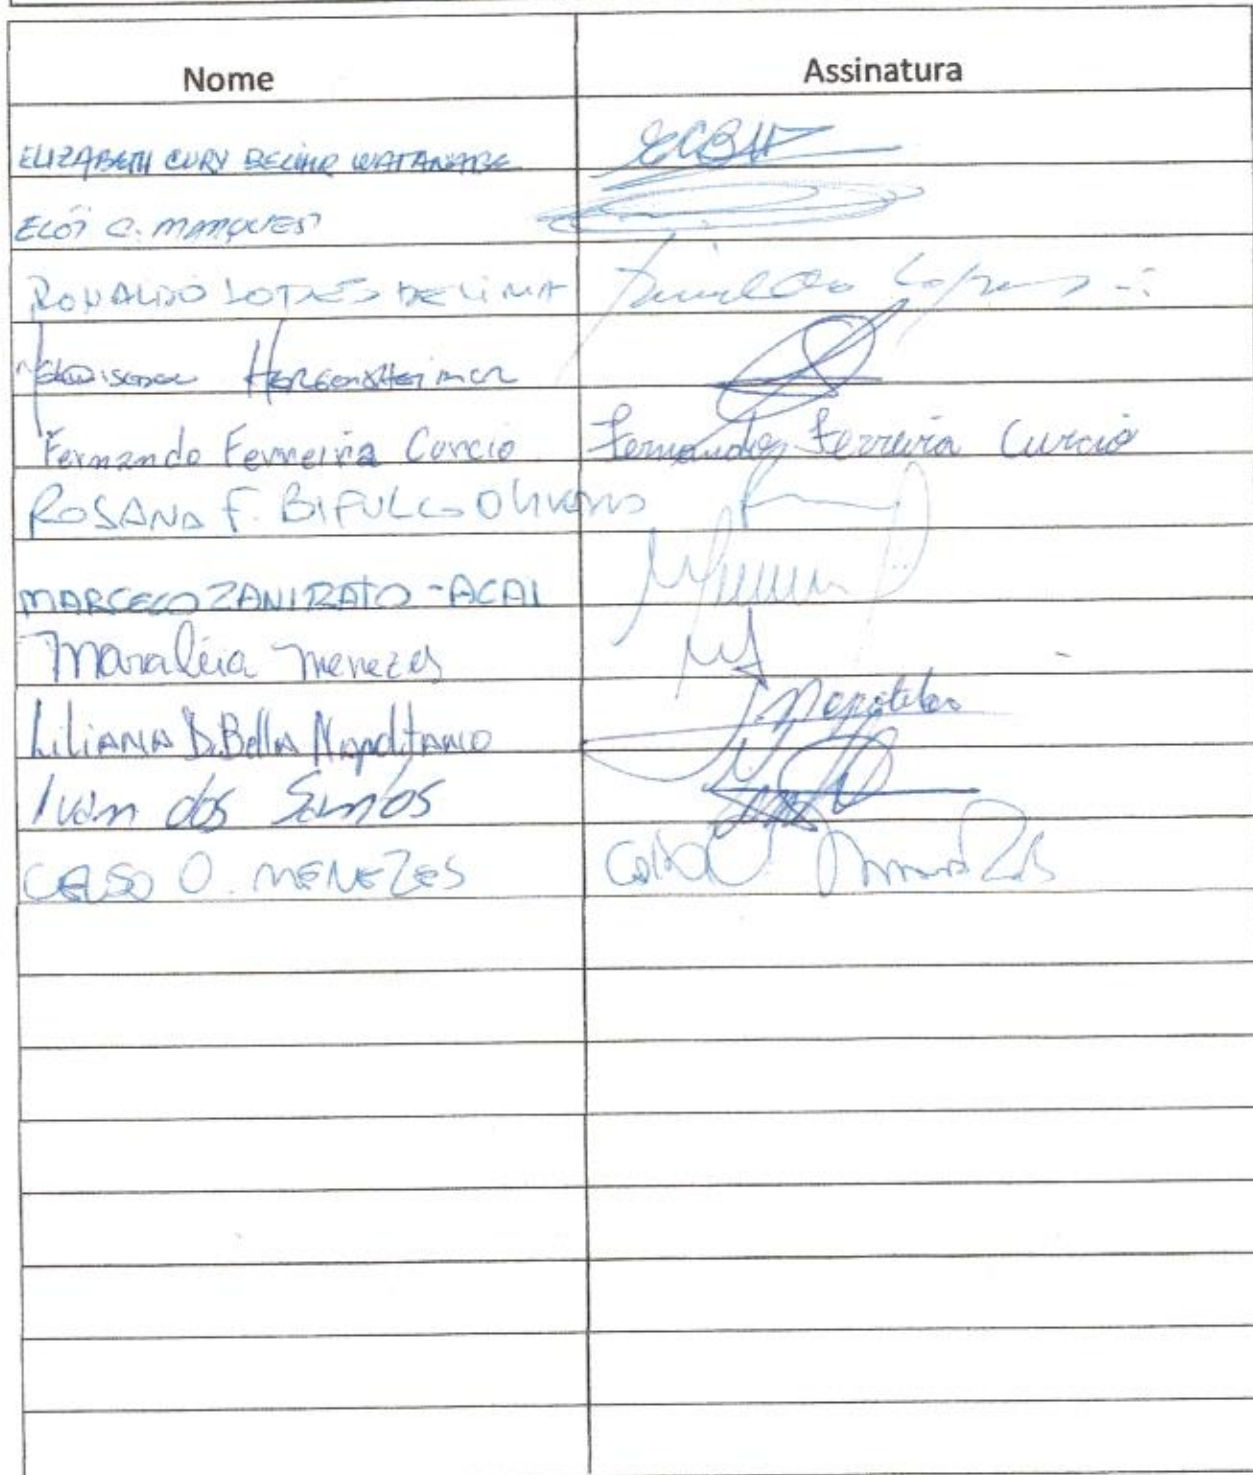 Nome Assinatura
ELIZABETH CURY BECHIR WATANABE ECBW
ELÓI C. MARQUES
RONALDO LOPES DE LIMA Ronaldo Lopes
HERGENSHEIMER
Fernando Ferreira Curcio Fernando Ferreira Curcio
ROSANA F. BIFULCO OLIVERIO
MARCELO ZANIRATO - ACAI
Maraléia Menezes
LiLiANA D.Bella Napolitano Napolitano
Ivan dos Santos
CELSO O. MENEZES Celso O. Menezes